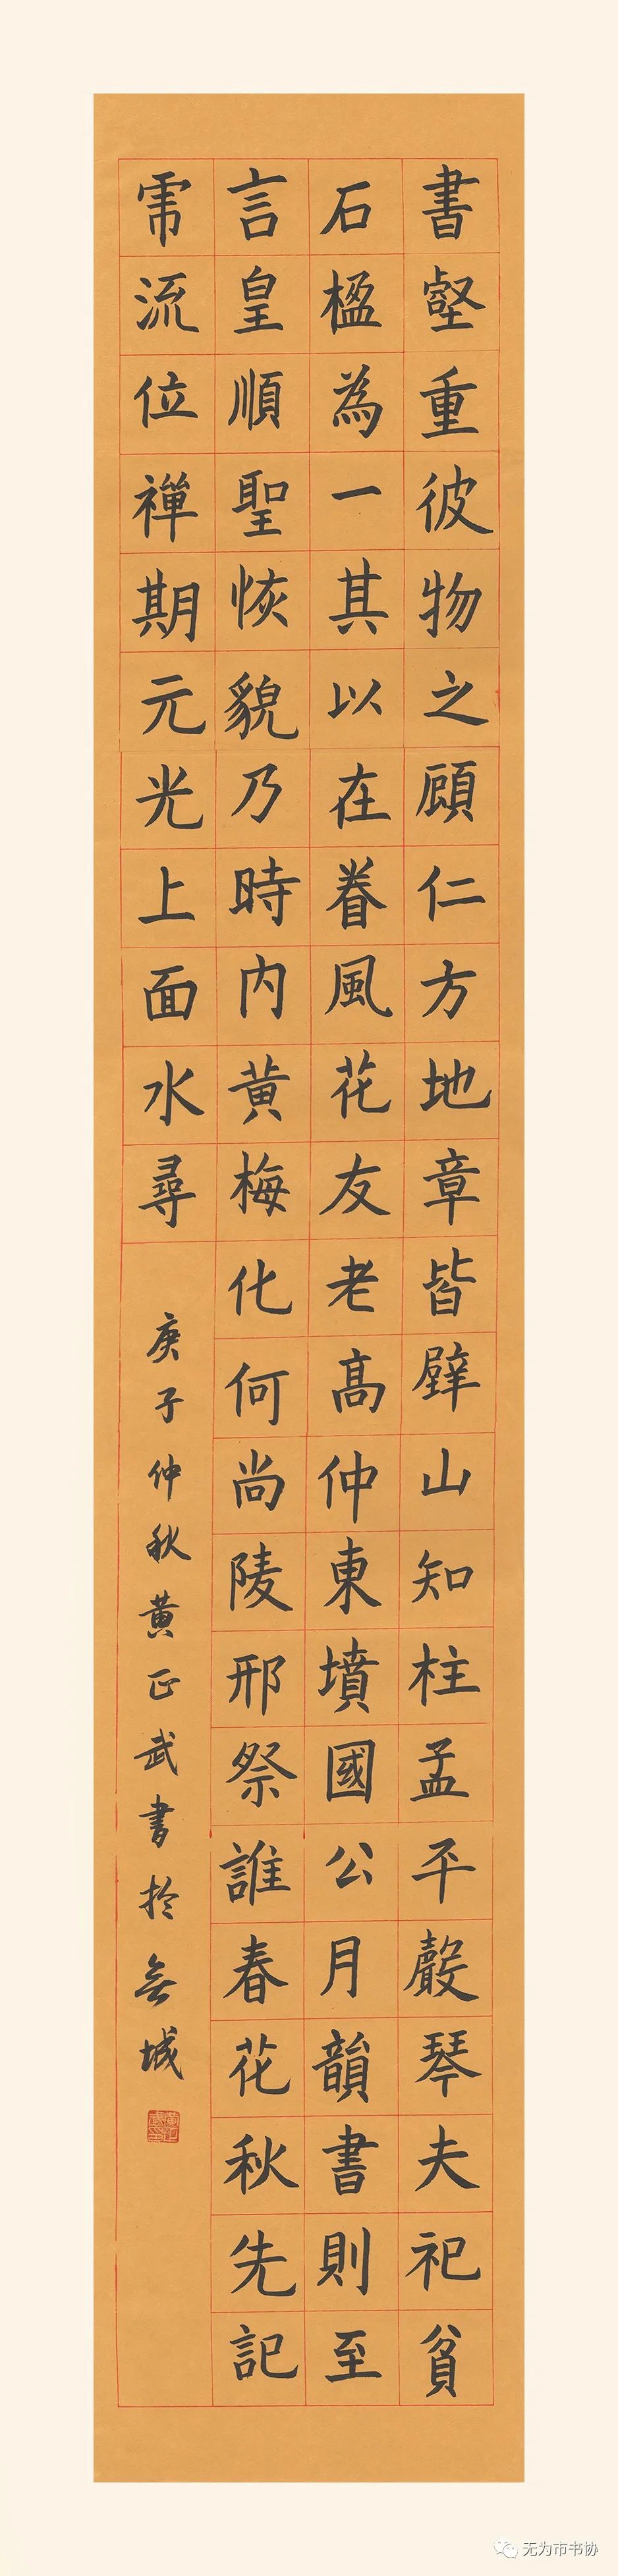 書壑重彼物之顧仁方地章皆壁山知柱孟平聲琴夫祀貧
石楹為一其以在眷風花友老高仲東墳國公月韻書則至
言皇順聖恢貌乃時内黄梅化何尚陵邢祭誰春花秋先記
帝流位禪期元光上面水尋
庚子仲秋黄正武書於無城
无为市书协